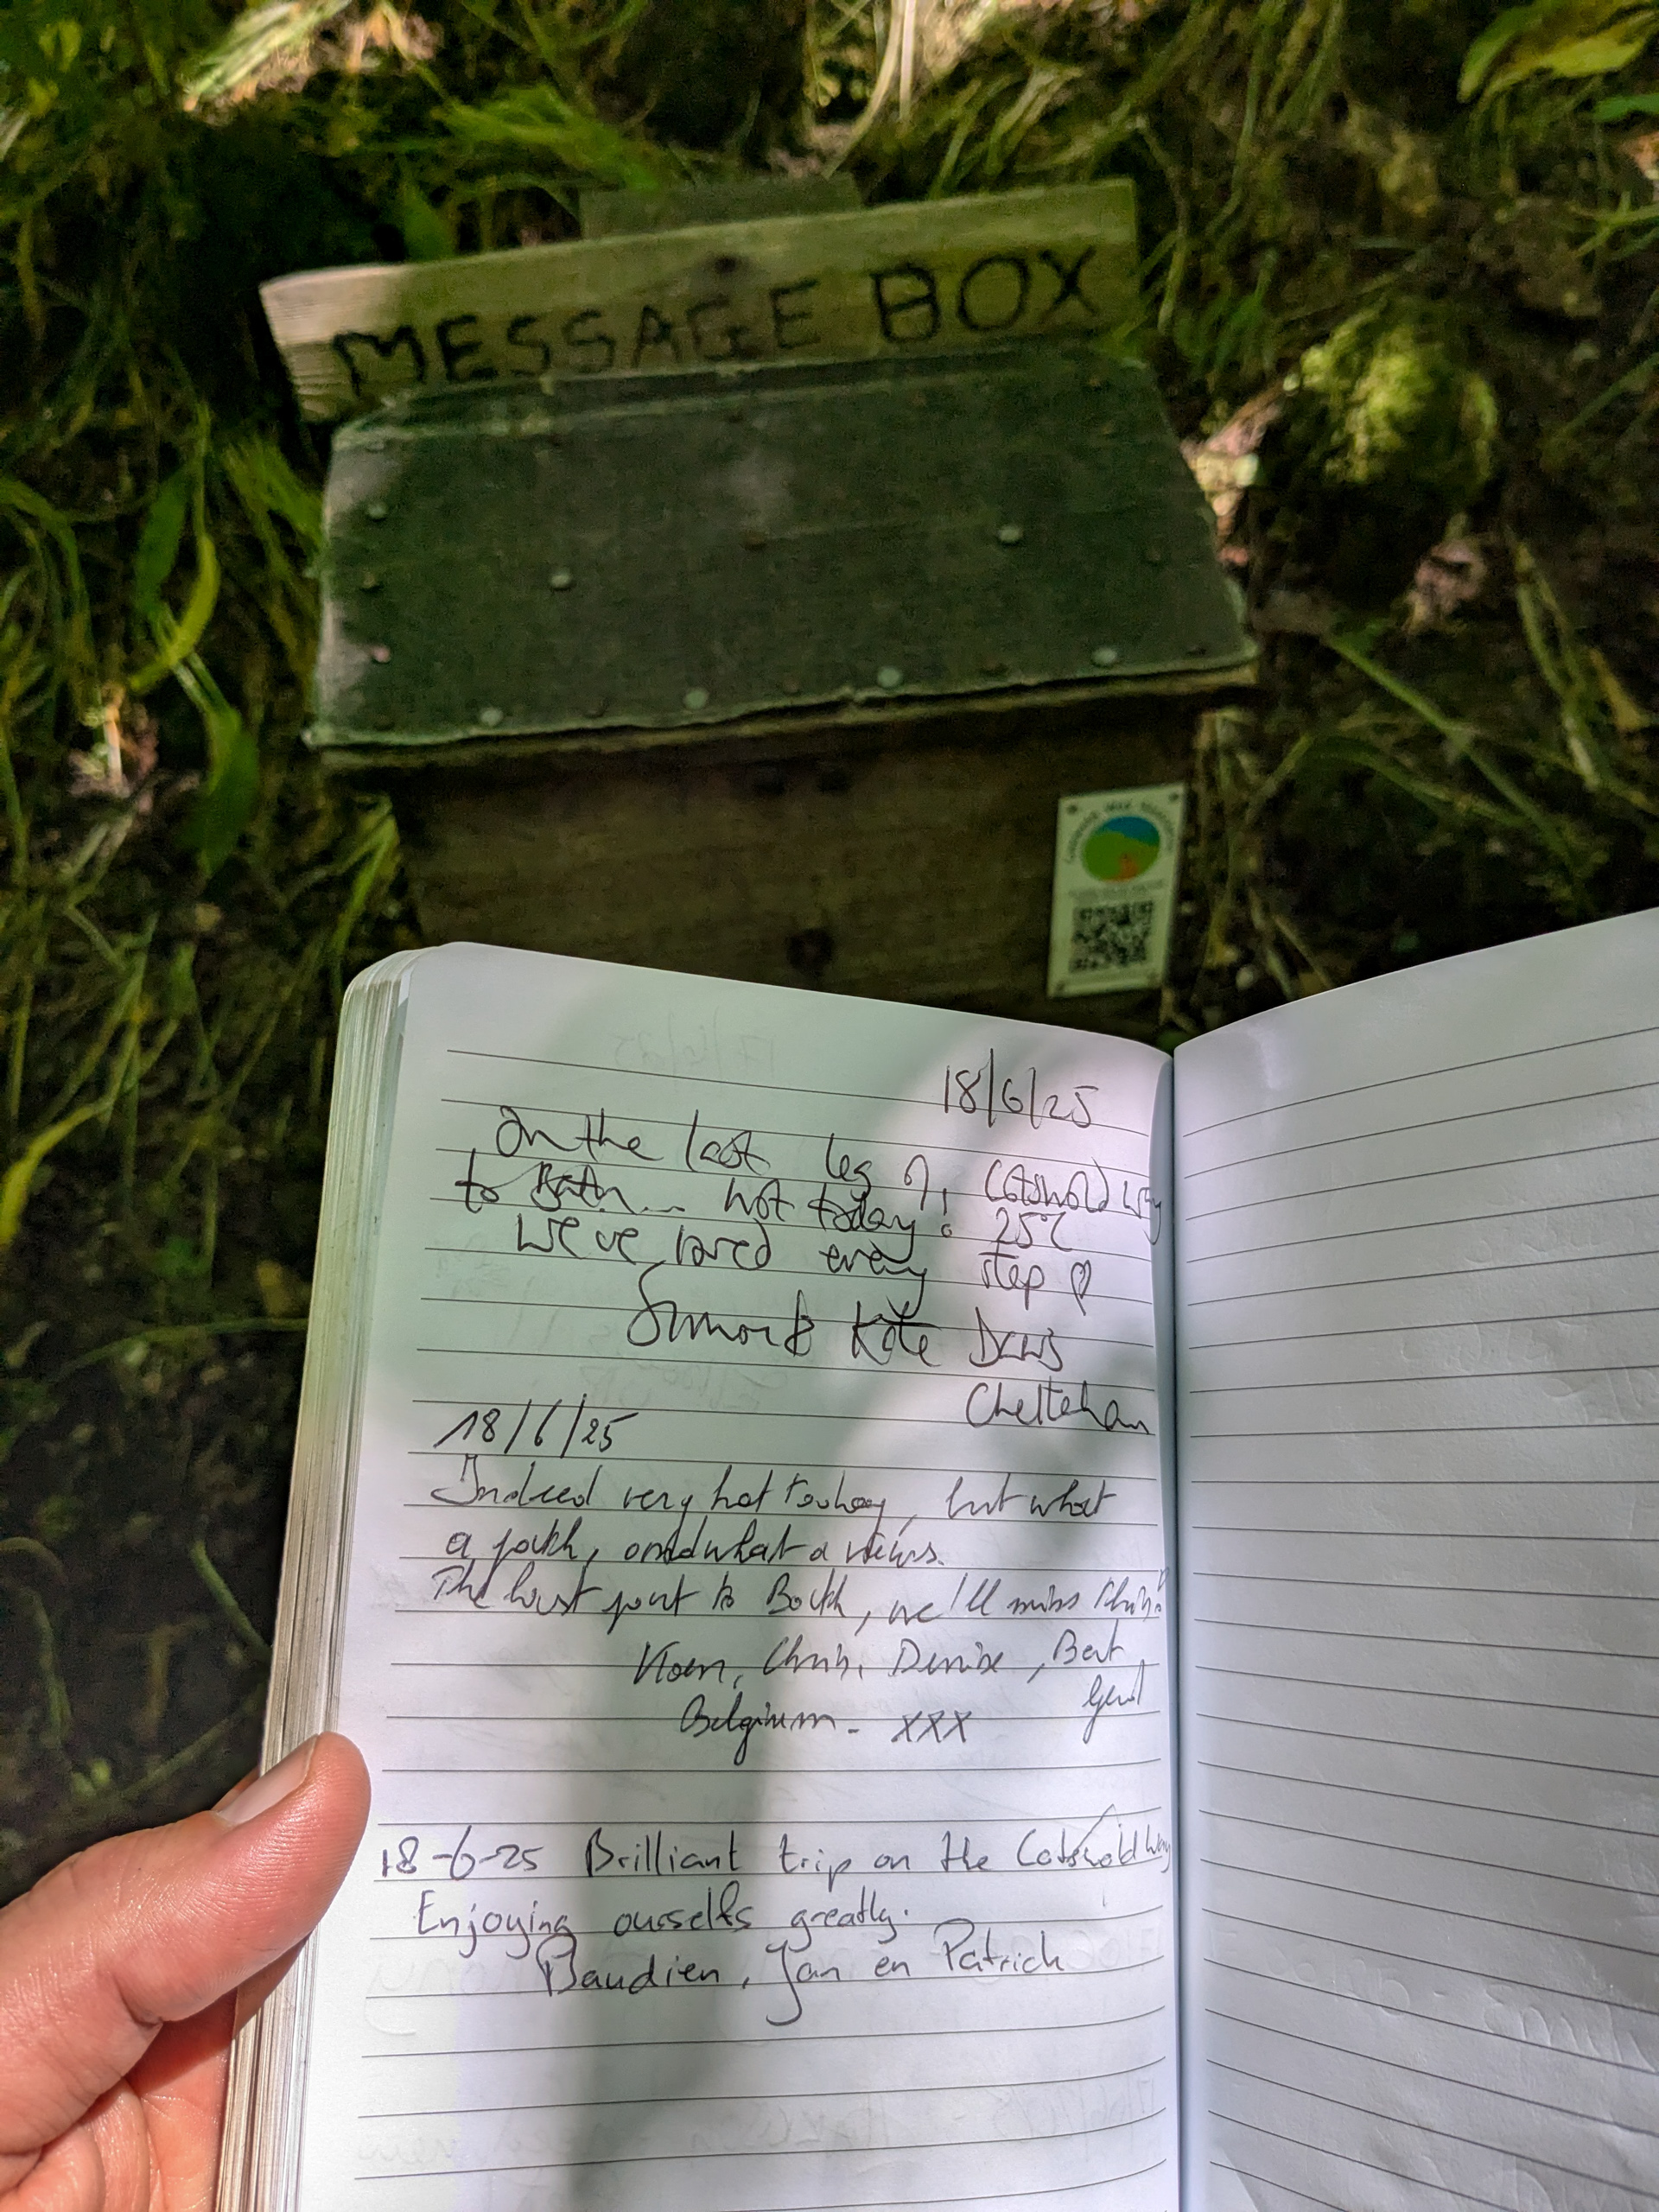 MESSAGE BOX
18/6/25
On the last leg of Cotswold Way
to Bath... hot today: 25°C
We've loved every step
Simon & Kate
Cheltenham
18/6/25
Indeed very hot today, but what
a path, and what a views.
The last part to Bath, we'll miss this!
Koen, Chris, Denise, Bert
Gent
Belgium - XXX
18-6-25 Brilliant trip on the Cotswold Way
Enjoying ourselfs greatly.
Baudien, Jan en Patrick